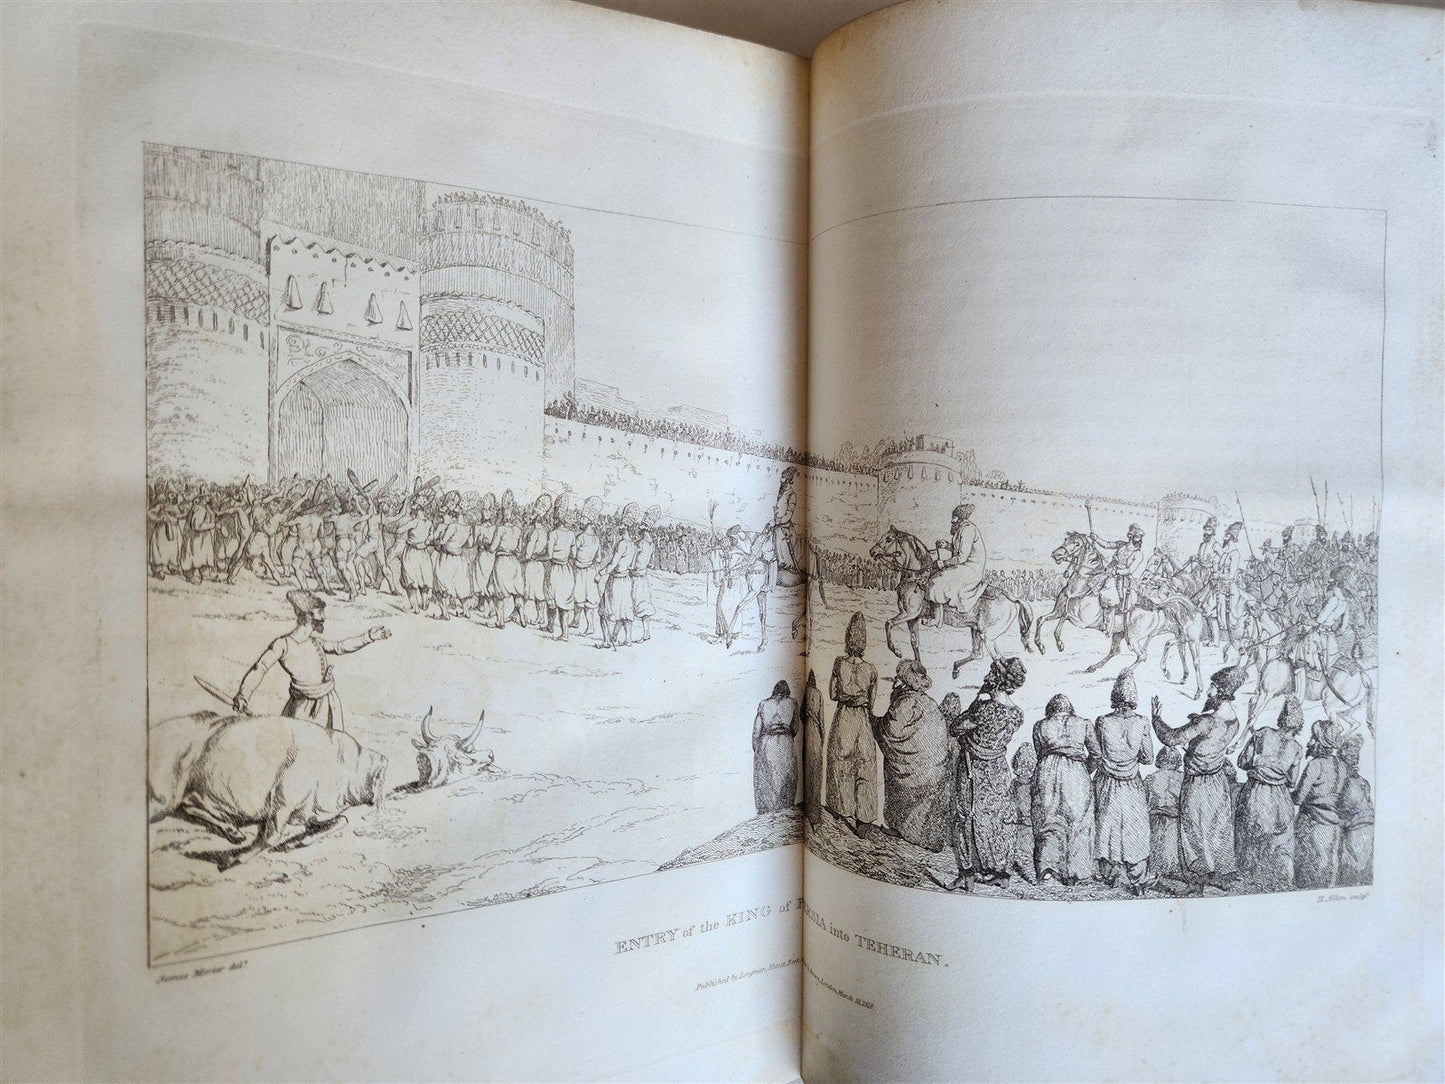 James Morier del.t
H. Alken sculp.t
ENTRY of the KING of PERSIA into TEHERAN.
Published by Longman, Hurst, Rees, London, March 31.1818.